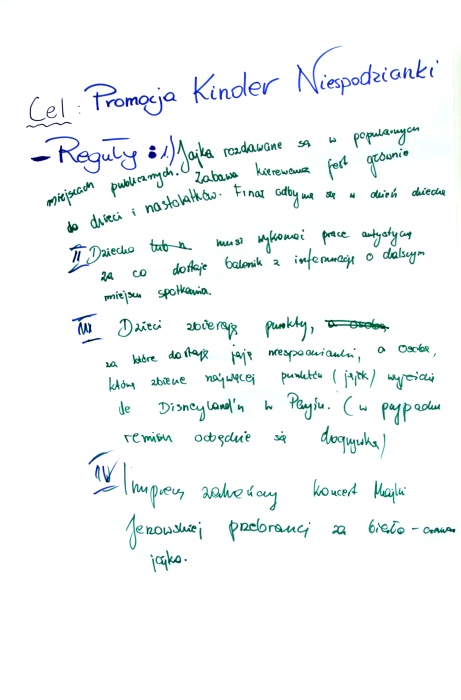 Cel: Promocja Kinder Niespodzianki
- Reguły: 1.) Jajka rozdawane są w popularnych
miejscach publicznych. Zabawa kierowana jest głównie
do dzieci i nastolatków. Finał odbywa się w dzień dziecka
II Dziecko lub n musi wykonać prace artystyczną
za co dostaje balonik z informacją o dalszym
miejscu spotkania.
III Dzieci zbierają punkty, a osoba
za które dostają jaja niespodzianki, a osoba,
która zbierze najwięcej punktów (jajek) wyjeżdża
do Disneyland'u w Paryżu. (w przypadku
remisu odbędzie się dogrywka)
IV Imprezę zakończy koncert Majki
Jeżowskiej przebranej za biało - czerwone
jajko.